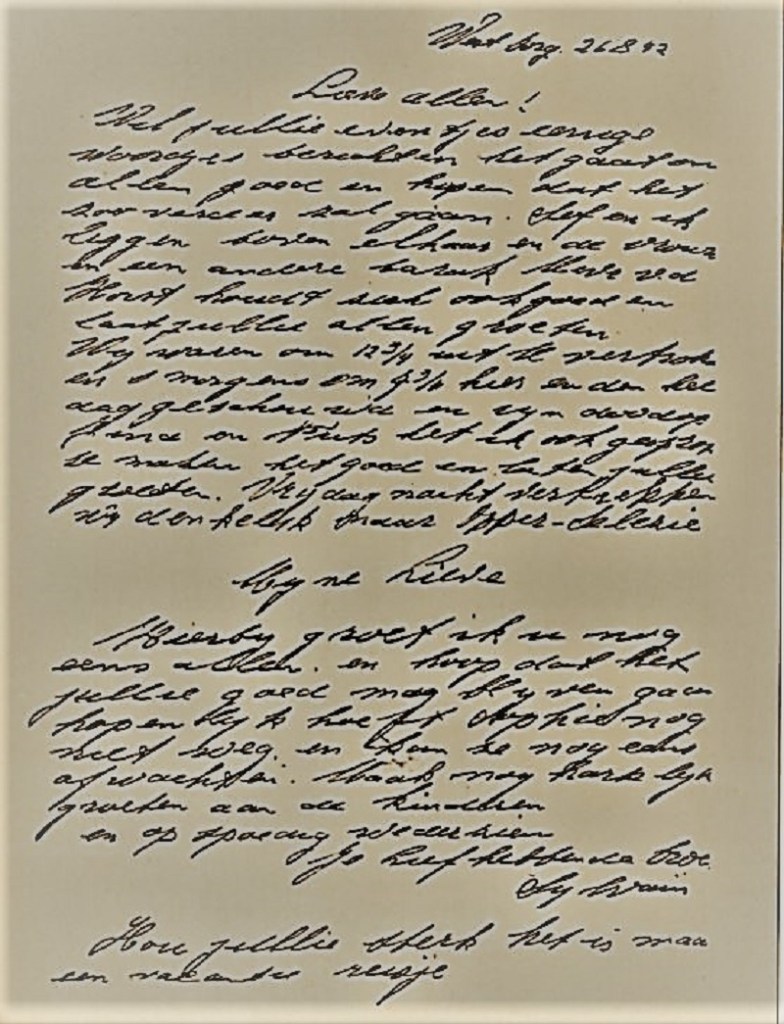 26 8 42
Lieve allen!
Wil jullie eventjes eenige
woordjes berichten het gaat on
allen goed en hopen dat het
zoo verder zal gaan. en ik
liggen boven elkaar en de vrouw
in een andere barak
Horst houdt zich ook goed en
laat jullie allen groeten
Wy waren om 12 3/4 uit vertrok
en s morgens om hier en den hee
dag en zyn doodop
en het ik ook
ze maken het goed en laten jullie
groeten. Vrydag nacht vertrekken
wy denkelyk naar Opper-Selezie
Myne Lieve
Hierby groet ik u nog
eens allen. en hoop dat het
jullie goed mag blyven gaan
hopenlyk hoeft Sophie nog
niet weg. en kan ze nog eens
afwachten. Maak nog hartelyk
groeten aan de kinderen
en op spoedig wederzien
Je liefhebbende
Sylvain
Hou jullie sterk het is maa
een vacantie reisje